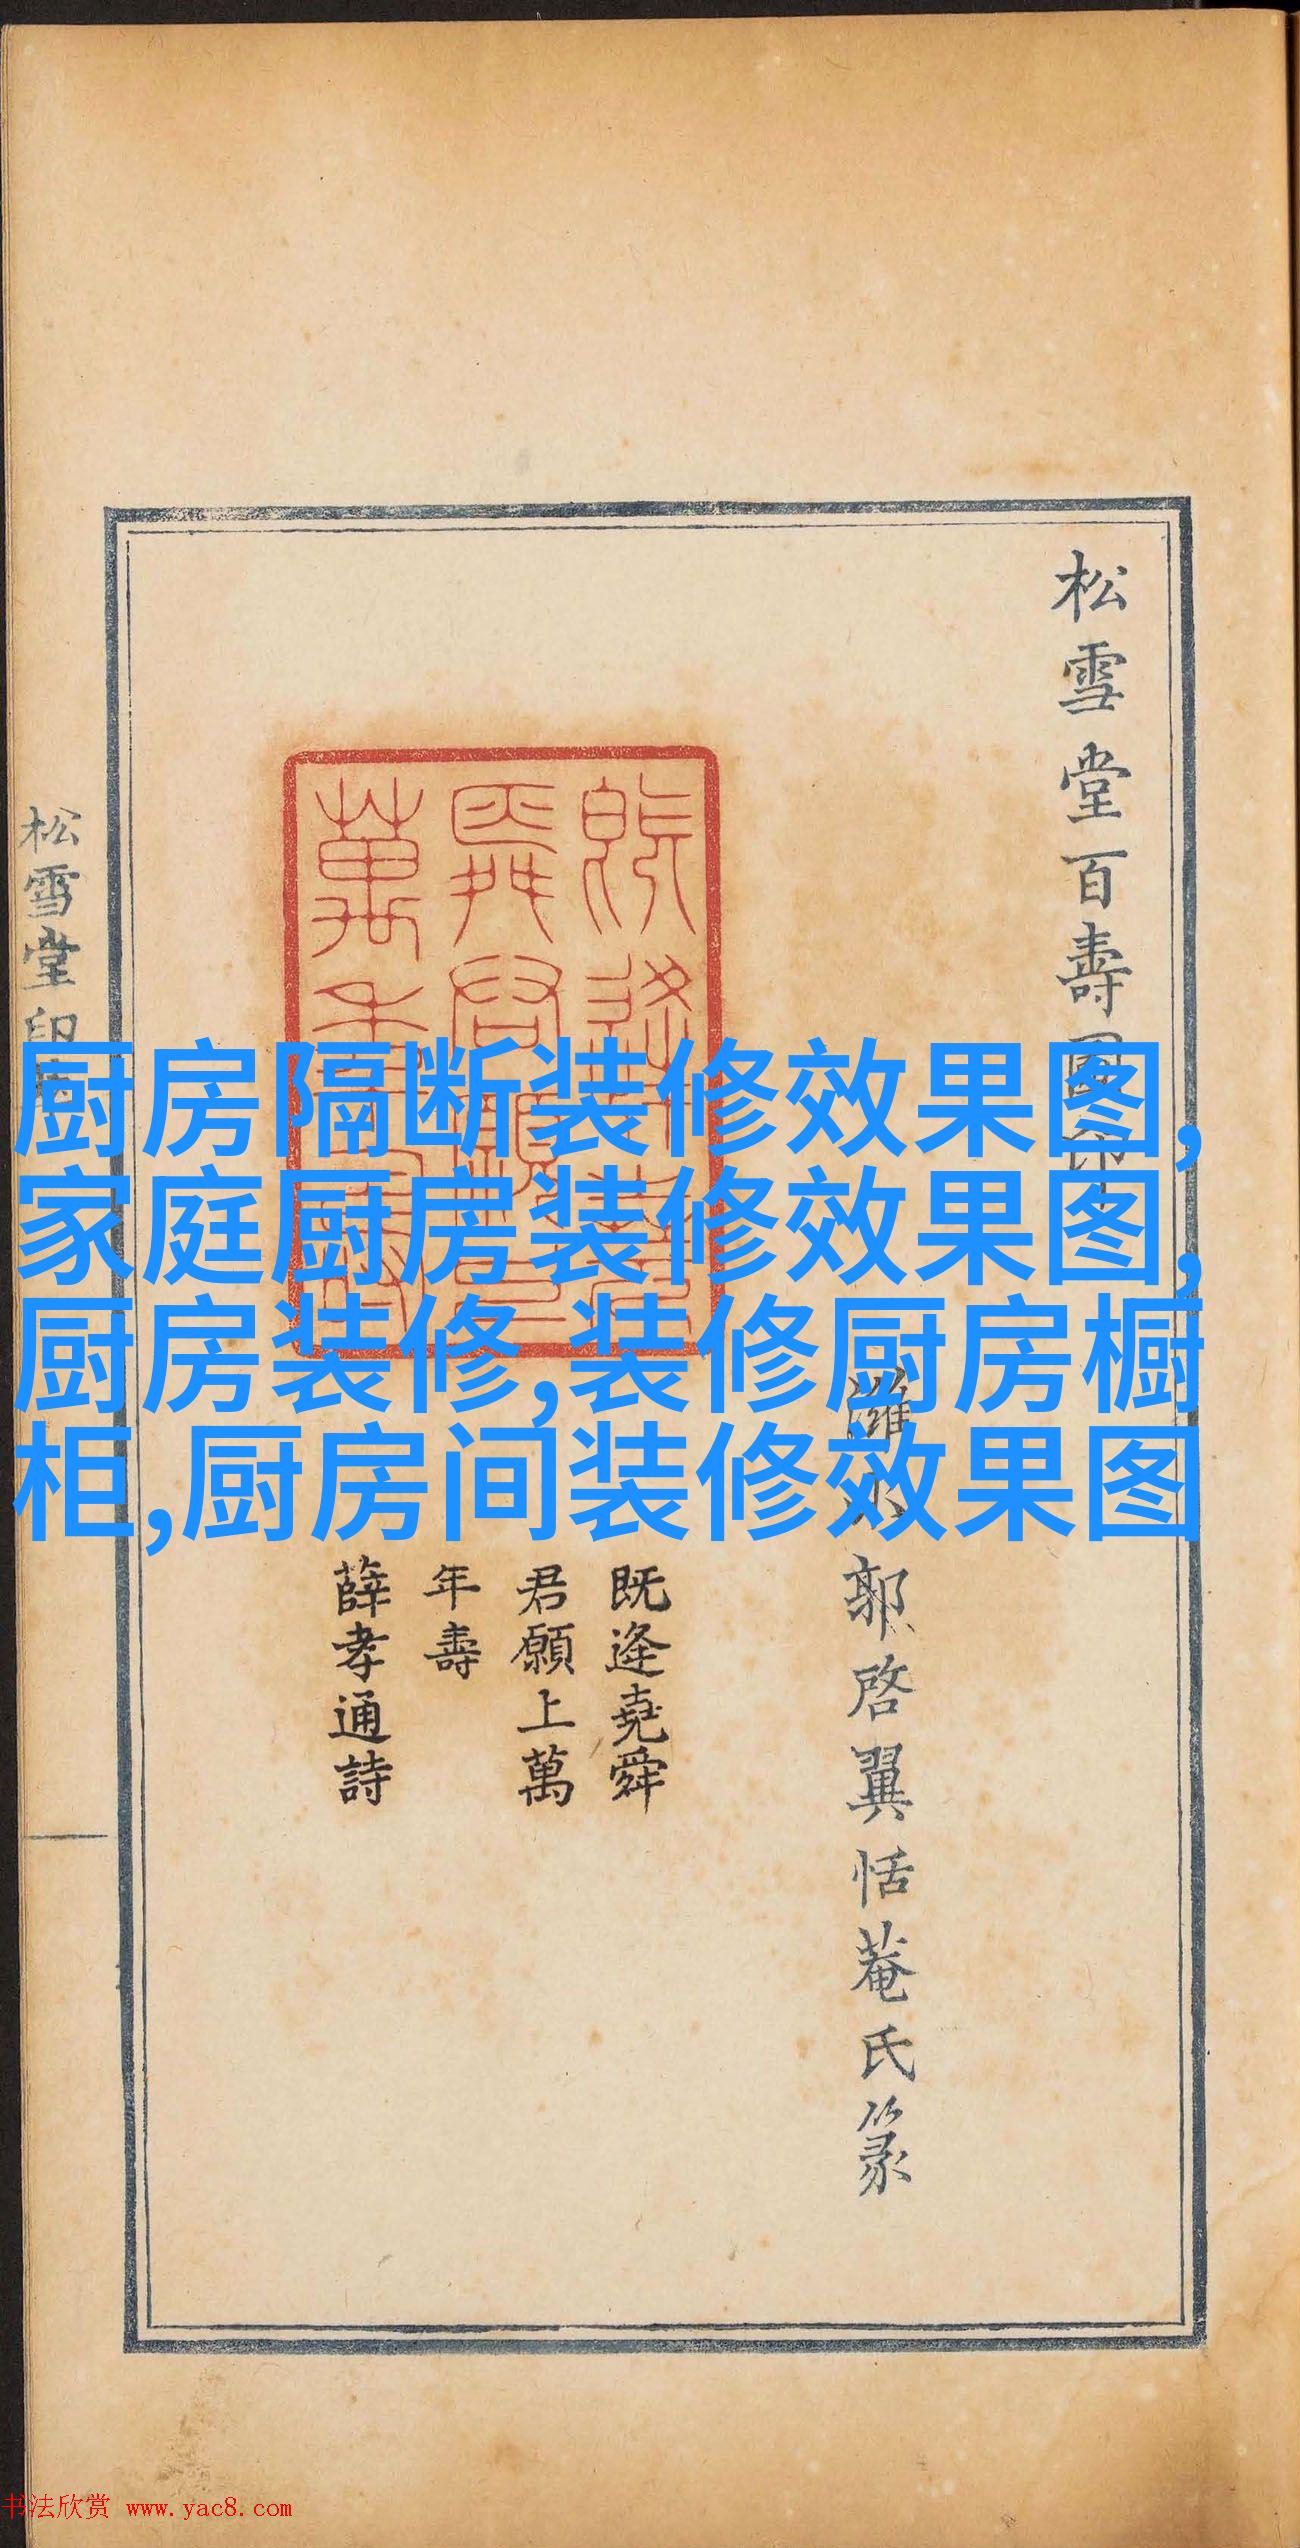 厨房隔断装修效果图,
家庭厨房装修效果图,
厨房装修,装修厨房橱
柜,厨房间装修效果图
松雪堂百壽圖印
濰水郭啓翼恬菴氏篆
既逢堯舜
君願上萬
年壽
薛孝通詩
松雪堂印
书法欣赏 www.yac8.com